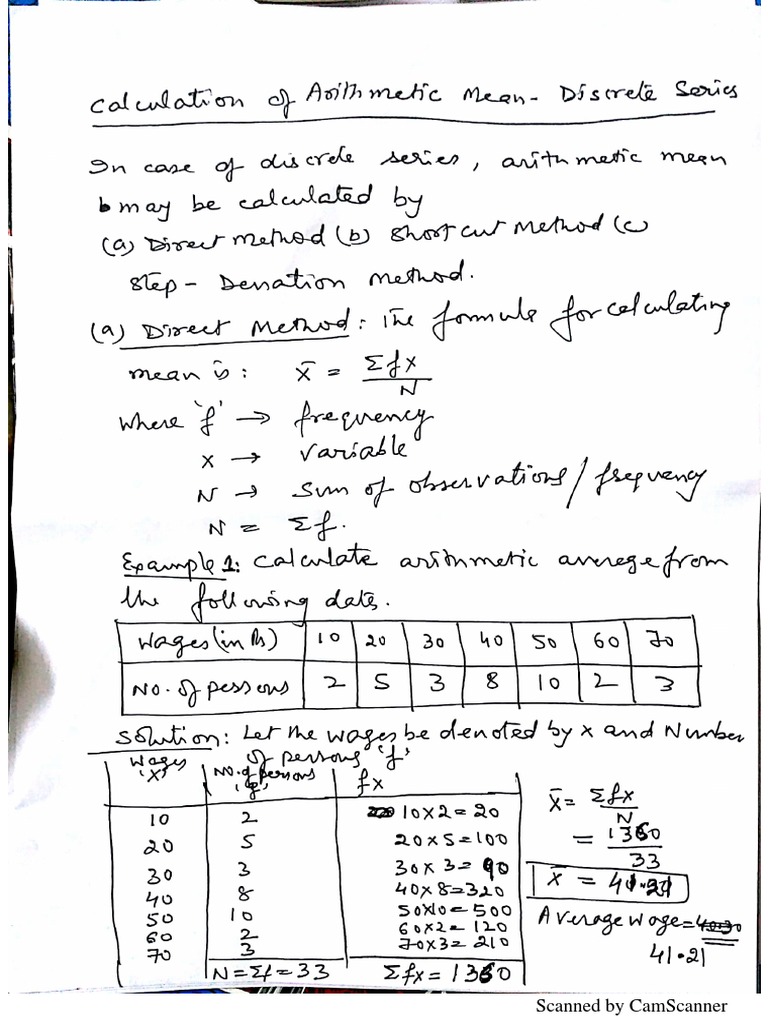 Calculation of Arithmetic Mean - Discrete Series
In case of discrete series, arithmetic mean
may be calculated by
(a) Direct method (b) Short cut Method (c)
Step - Deviation method.
(a) Direct Method: The formula for calculating
mean is: X̄ = Σfx / N
Where 'f' → frequency
X → Variable
N → Sum of observations/frequency
N = Σf.
Example 1: Calculate arithmetic average from
the following data.
Wages (in Rs) 10 20 30 40 50 60 70
No. of persons 2 5 3 8 10 2 3
Solution: Let the wages be denoted by x and Number
of persons 'f'
Wages 'X' No. of persons 'f' fx
10 2 10x2=20
20 5 20x5=100
30 3 30x3=90
40 8 40x8=320
50 10 50x10=500
60 2 60x2=120
70 3 70x3=210
N=Σf=33 Σfx=1360
X̄ = Σfx / N
= 1360 / 33
X̄ = 41.21
Average wage=
41.21
Scanned by CamScanner